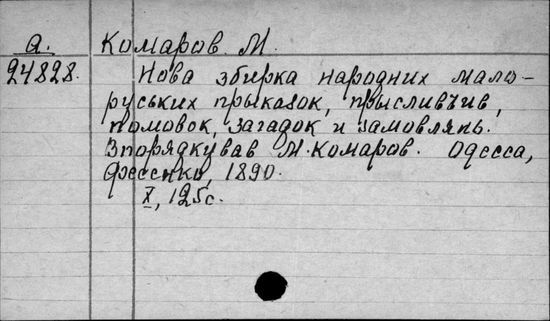 а. Комаров М.
24828. Нова збирка народних мало-
руських прыказок, прысливъив,
помовок, загадок и замовлянь.
Впорядкував М. Комаров. Одесса,
Фесенко, 1890.
X, 125с.